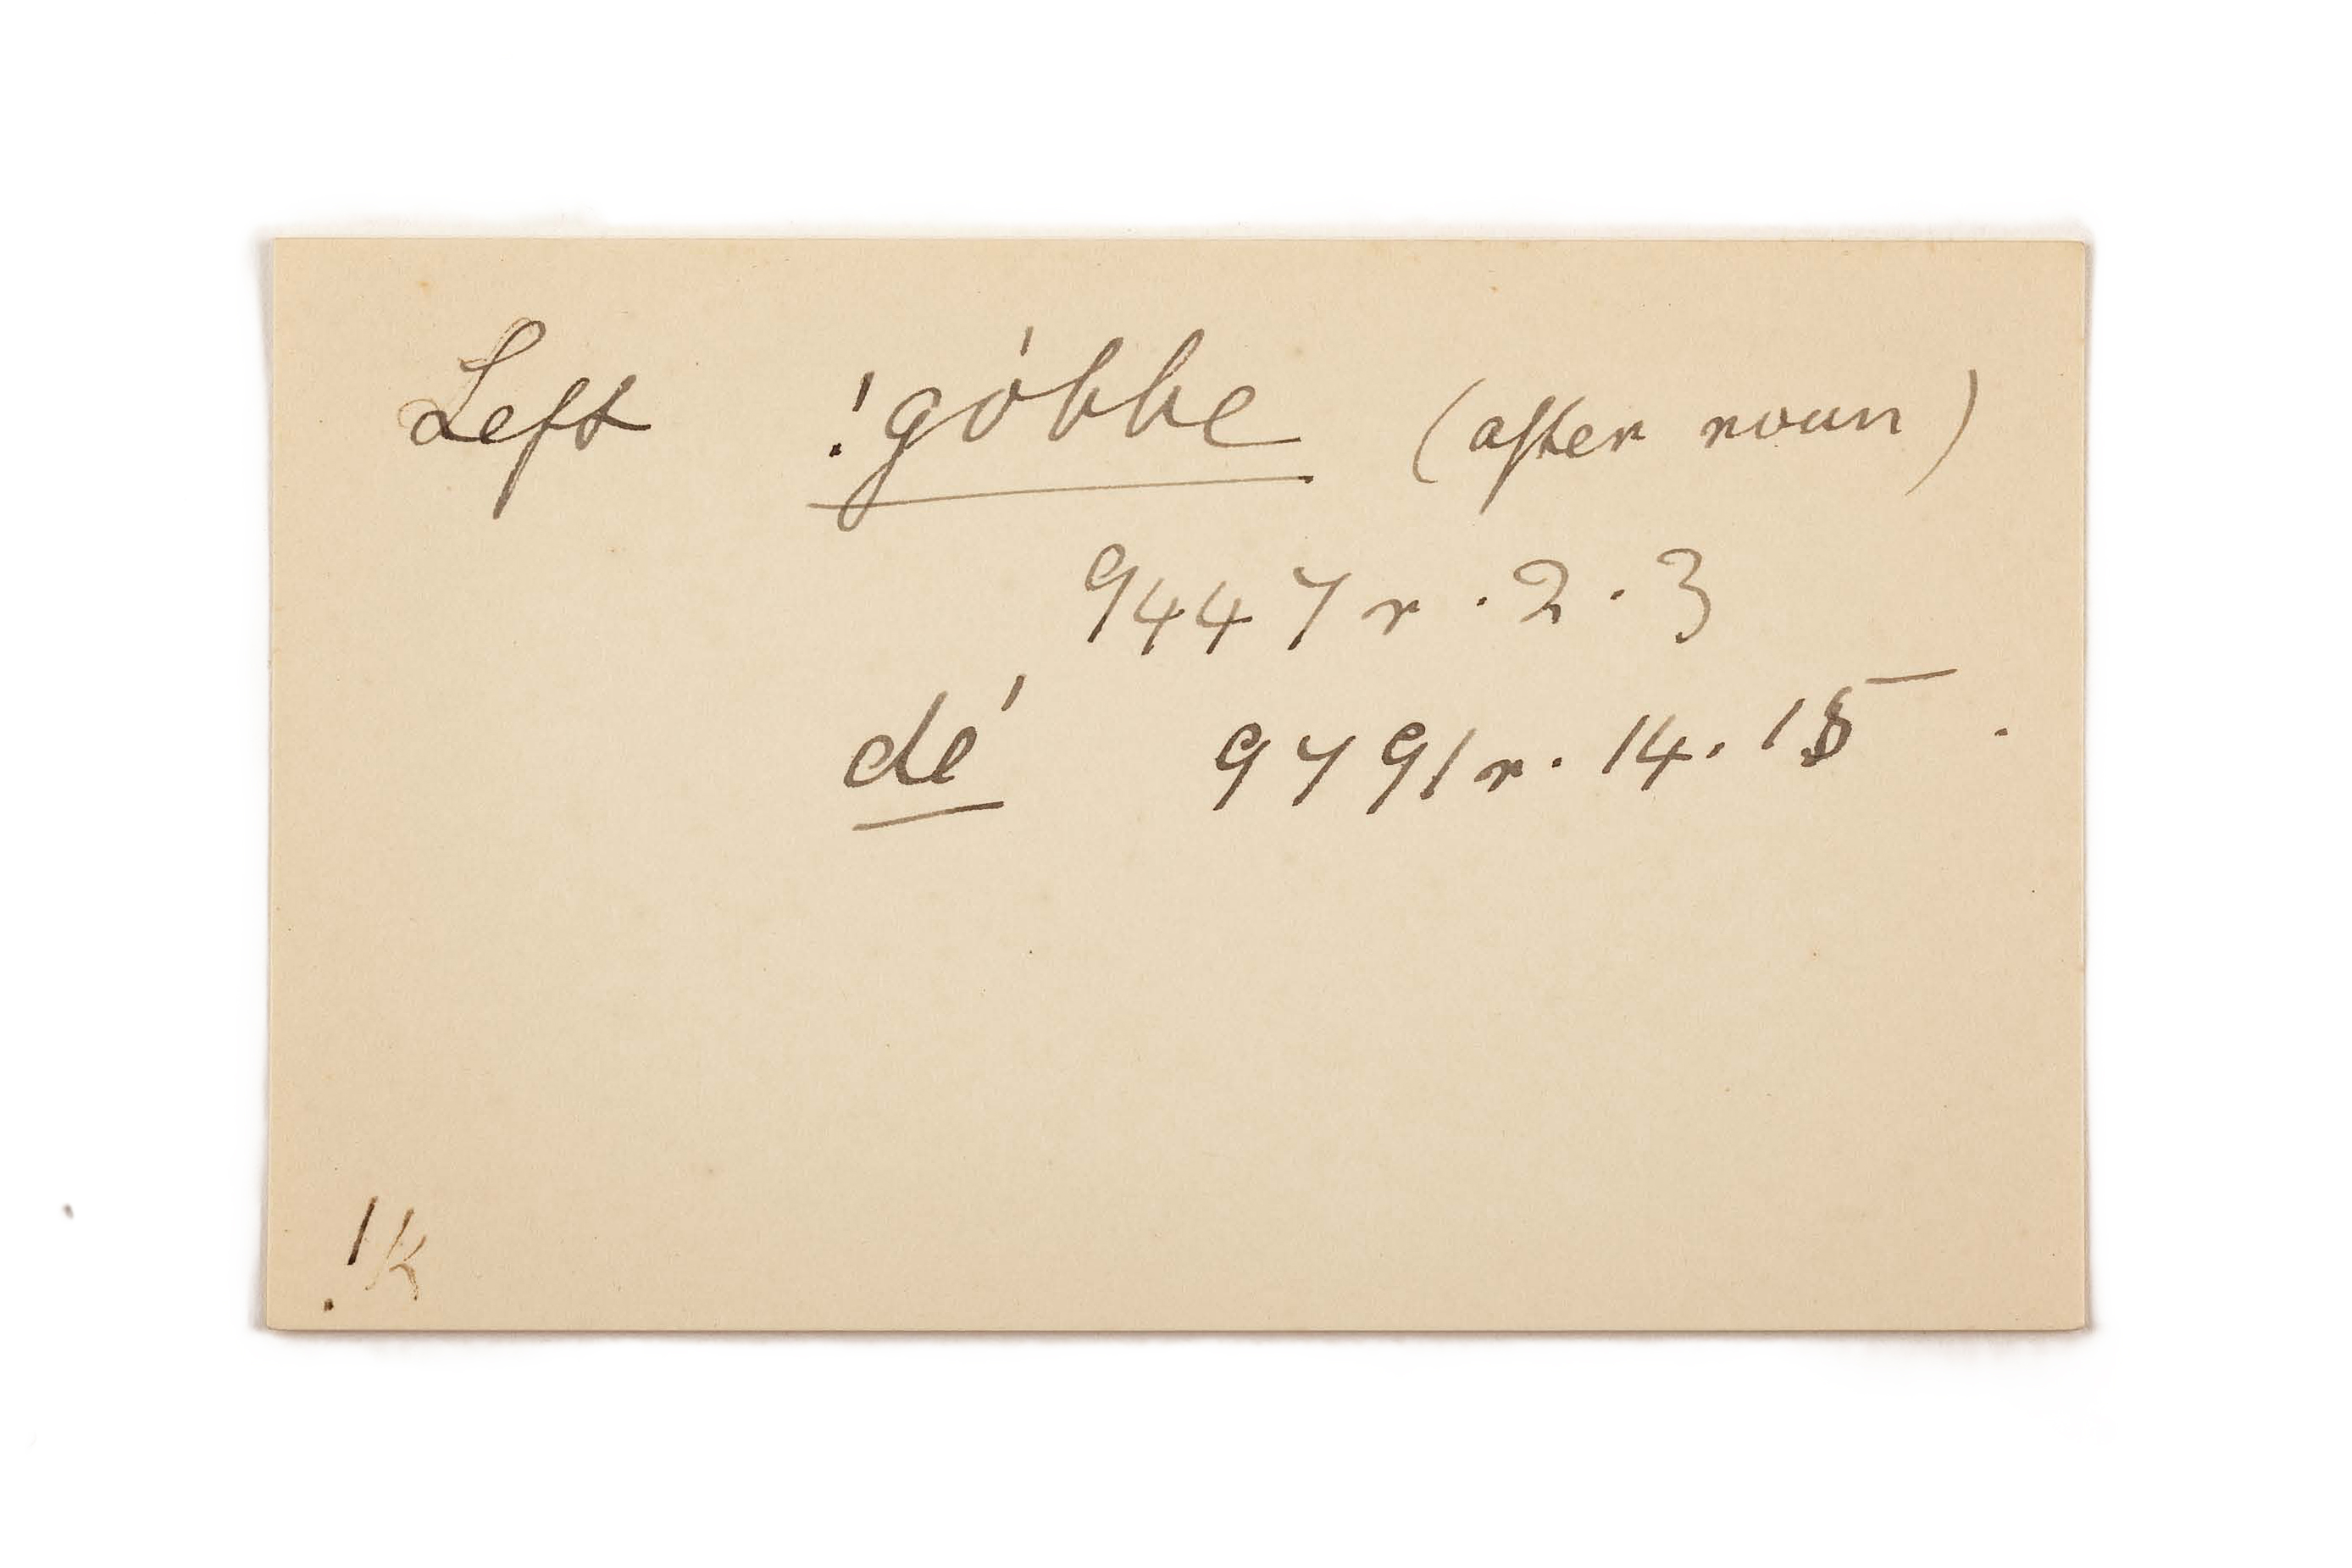 Left !góbbe (after noun)
9447 r. 2. 3
dé 9791 r. 14. 15.
!k